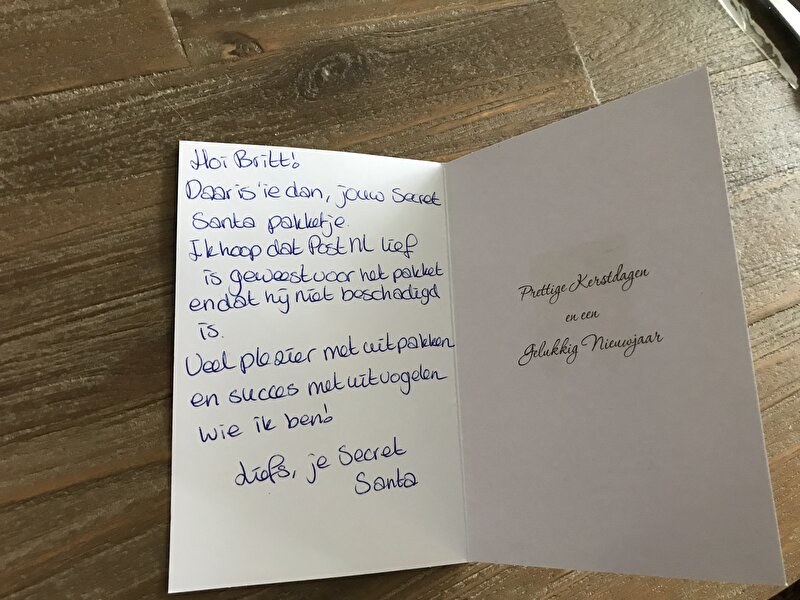 Hoi Britt!
Daar is 'ie dan, jouw Secret
Santa pakketje.
Ik hoop dat Post NL lief
is geweest voor het pakket
en dat hij niet beschadigd
is.
Veel plezier met uitpakken
en succes met uitvogelen
wie ik ben!
Liefs, je Secret
Santa
Prettige Kerstdagen
en een
Gelukkig Nieuwjaar